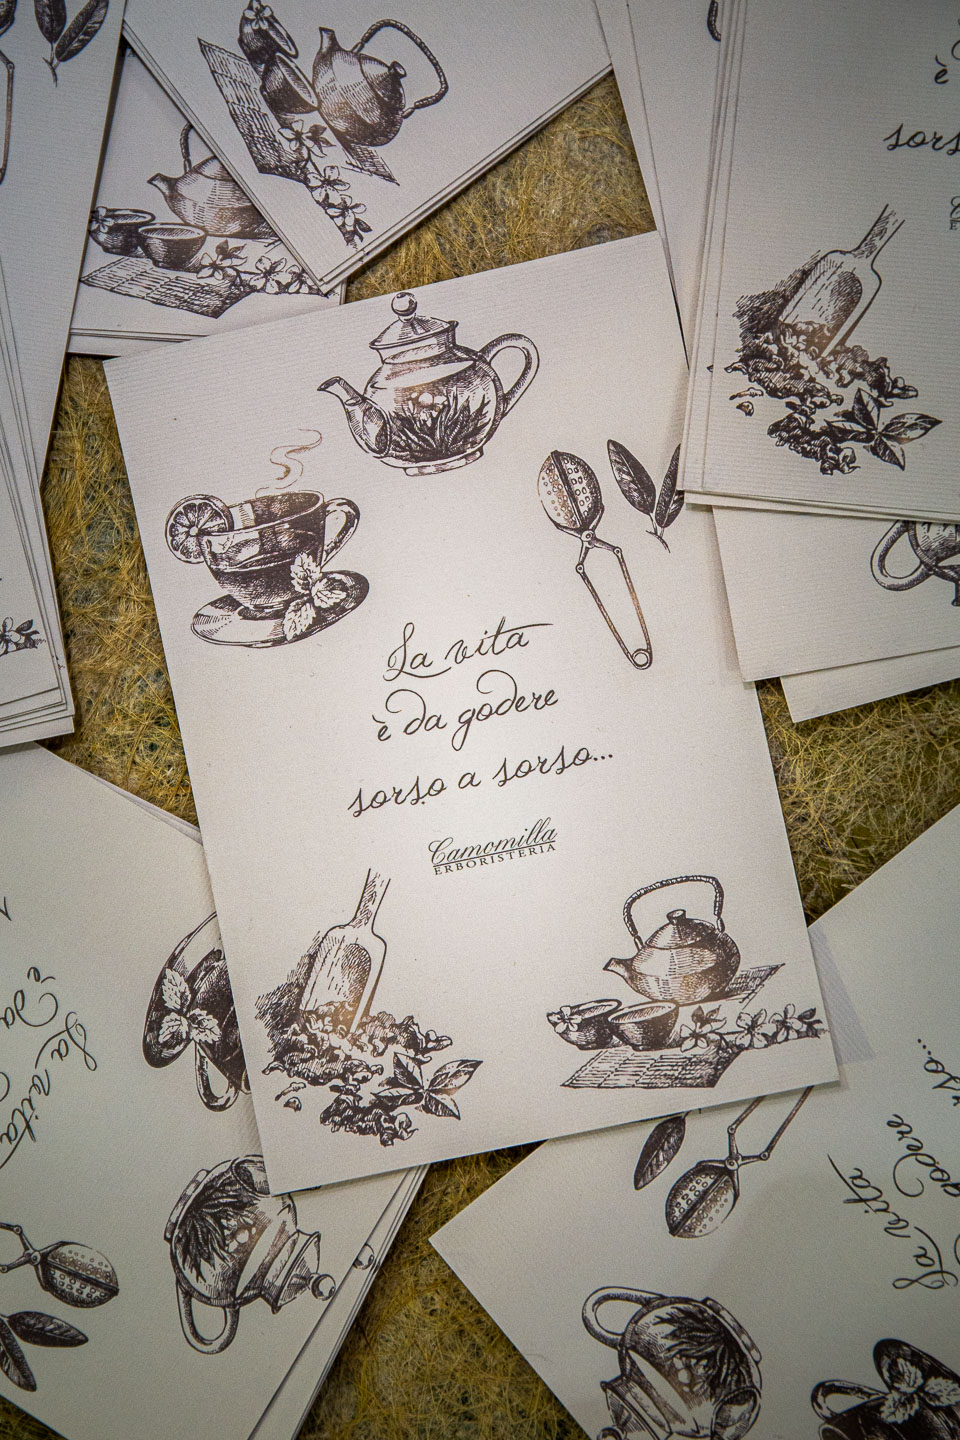 La vita
è da godere
sorso a sorso...
Camomilla
ERBORISTERIA
è
sors
La vita
è da
La vita
godere
rso...